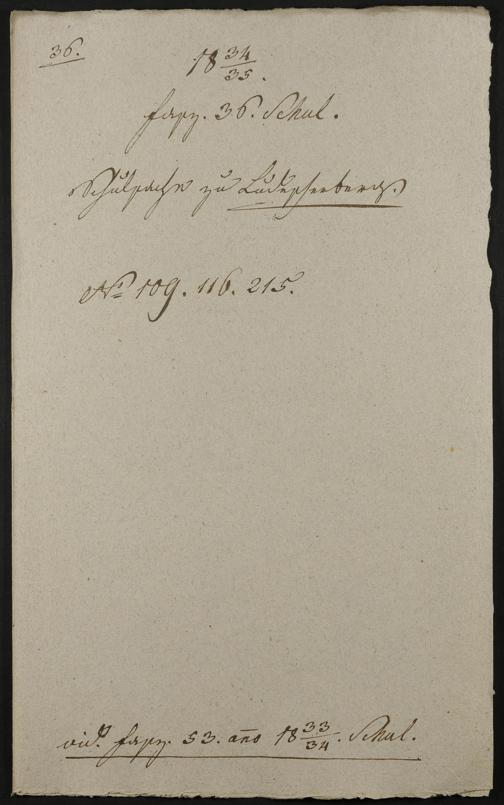 36.
18 34/35.
fasz. 36. Schul.
Schulsache zu
No 109. 116. 215.
vid. fasz. 53. ano 18 33/34. Schul.